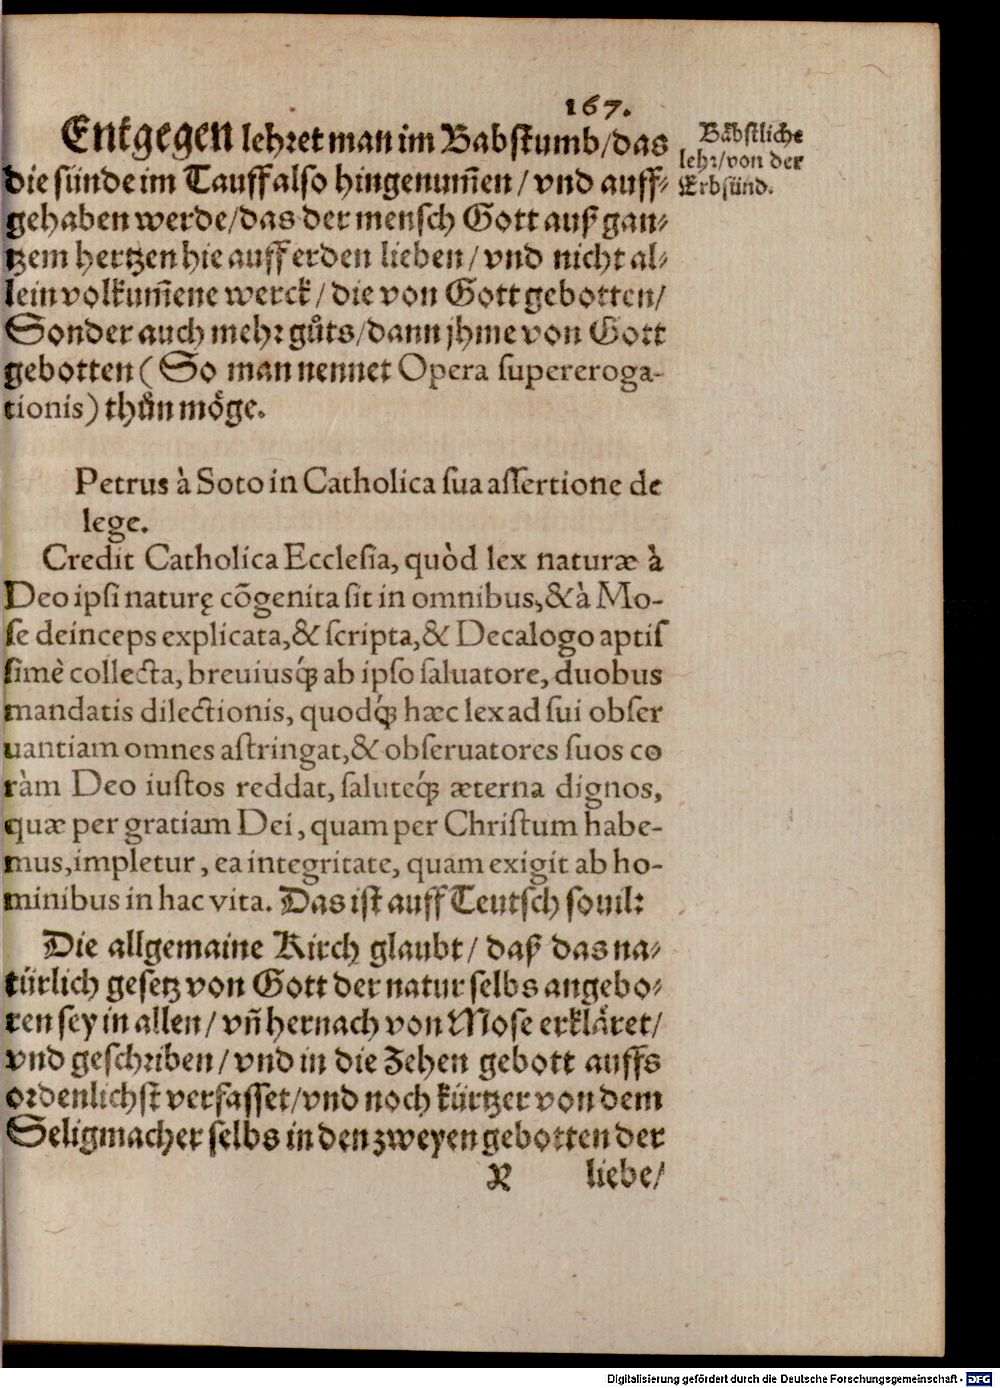 167.
Entgegen lehret man im Babstumb/das
die sünde im Tauff also hingenum̃en/vnd auff⸗
gehaben werde/das der mensch Gott auß gan⸗
tzem hertzen hie auff erden lieben/vnd nicht al⸗
lein volkum̃ene werck/die von Gott gebotten/
Sonder auch mehr gůts/dann jhme von Gott
gebotten (So man nennet Opera ſupereroga-
tionis) thůn möge.
Bäbstliche
lehr/von der
Erbsünd.
Petrus à Soto in Catholica ſua aſſertione de
lege.
Credit Catholica Eccleſia, quòd lex naturæ à
Deo ipſi naturę cōgenita ſit in omnibus, & à Mo-
ſe deinceps explicata, & ſcripta, & Decalogo aptiſ
ſimè collecta, breuiusq́; ab ipſo ſaluatore, duobus
mandatis dilectionis, quodq́; hæc lex ad ſui obſer
uantiam omnes aſtringat, & obſeruatores ſuos co
ràm Deo iuſtos reddat, ſaluteq́; æterna dignos,
quæ per gratiam Dei, quam per Chriſtum habe-
mus, impletur, ea integritate, quam exigit ab ho-
minibus in hac vita. Das ist auff Teutsch souil:
Die allgemaine Kirch glaubt/daß das na⸗
türlich gesetz von Gott der natur selbs angebo⸗
ren sey in allen/vñ hernach von Mose erkläret/
vnd geschriben/vnd in die Zehen gebott auffs
ordenlichst verfasset/vnd noch kürtzer von dem
Seligmacher selbs in den zweyen gebotten der
X liebe/
Digitalisierung gefördert durch die Deutsche Forschungsgemeinschaft - DFG